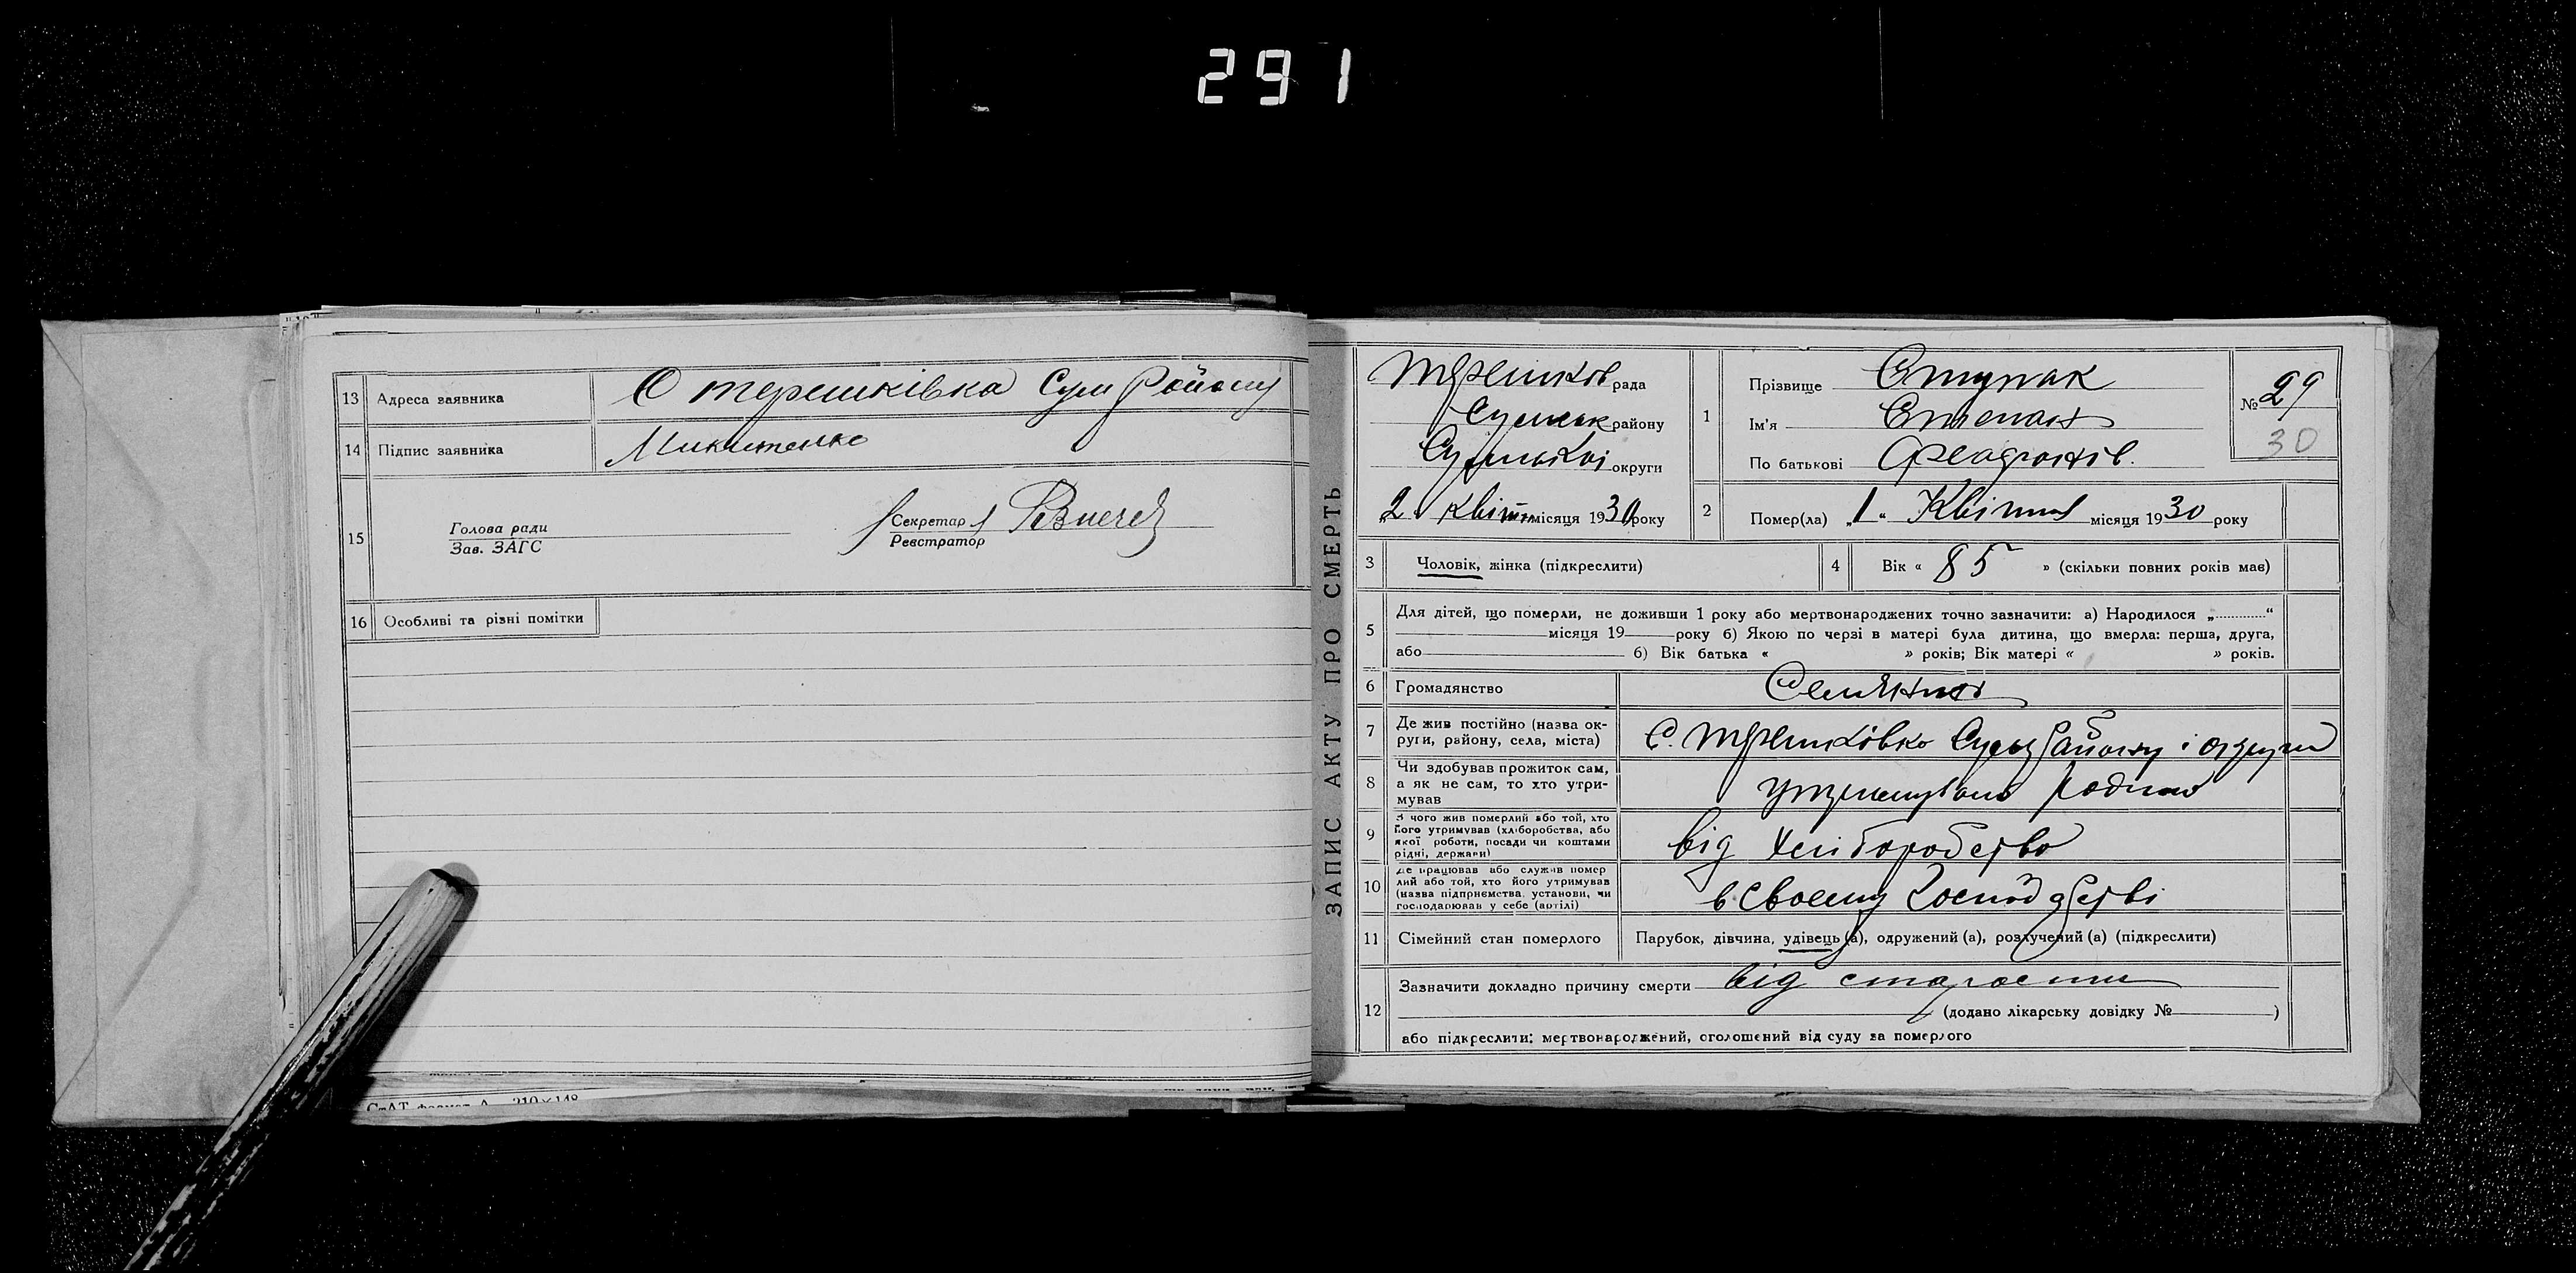 291
13 Адреса заявника С терешківка Сум Району
14 Підпис заявника Микитенко
15 Голова ради
Зав. ЗАГС
Секретар
Реєстратор
16 Особливі та різні помітки
ЗАПИС АКТУ ПРО СМЕРТЬ
Терешків рада
Сумськ району
Сумської округи
„2“ Квітня місяця 1930 року
1 Прізвище Ступак
Ім'я Степан
По батькові
№ 29
30
2 Помер(ла) „1“ Квітня місяця 1930 року
3 Чоловік, жінка (підкреслити)
4 Вік « 85 » (скільки повних років має)
5 Для дітей, що померли, не доживши 1 року або мертвонароджених точно зазначити: а) Народилося „............“
місяця 19 року б) Якою по черзі в матері була дитина, що вмерла: перша, друга,
або б) Вік батька « » років; Вік матері « » років.
6 Громадянство
7 Де жив постійно (назва ок-
руги, району, села, міста) С. Терешківка Сумськ Району і округи
8 Чи здобував прожиток сам,
а як не сам, то хто утри-
мував
9 З чого жив померлий або той, хто
його утримував (хліборобства, або
якої роботи, посади чи коштами
рідні, держави) від хліборобства
10 Де працював або служив помер
лий або той, хто його утримував
(назва підприємства, установи, чи
господарював у себе (артілі) в своєму господарстві
11 Сімейний стан померлого Парубок, дівчина, удівець (а), одружений (а), розлучений (а) (підкреслити)
12 Зазначити докладно причину смерти від старости
(додано лікарську довідку № )
або підкреслити: мертвонароджений, оголошений від суду за померлого